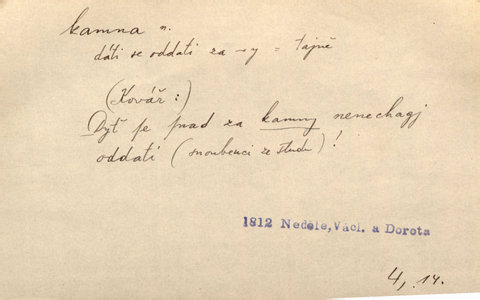 kamna n.
dáti se oddati za -y = tajně
(Kovář:)
Dyť se snad za kamny nenechagj
oddati (snoubenci ze studu)!
1812 Neděle, Václ. a Dorota
4, 14.